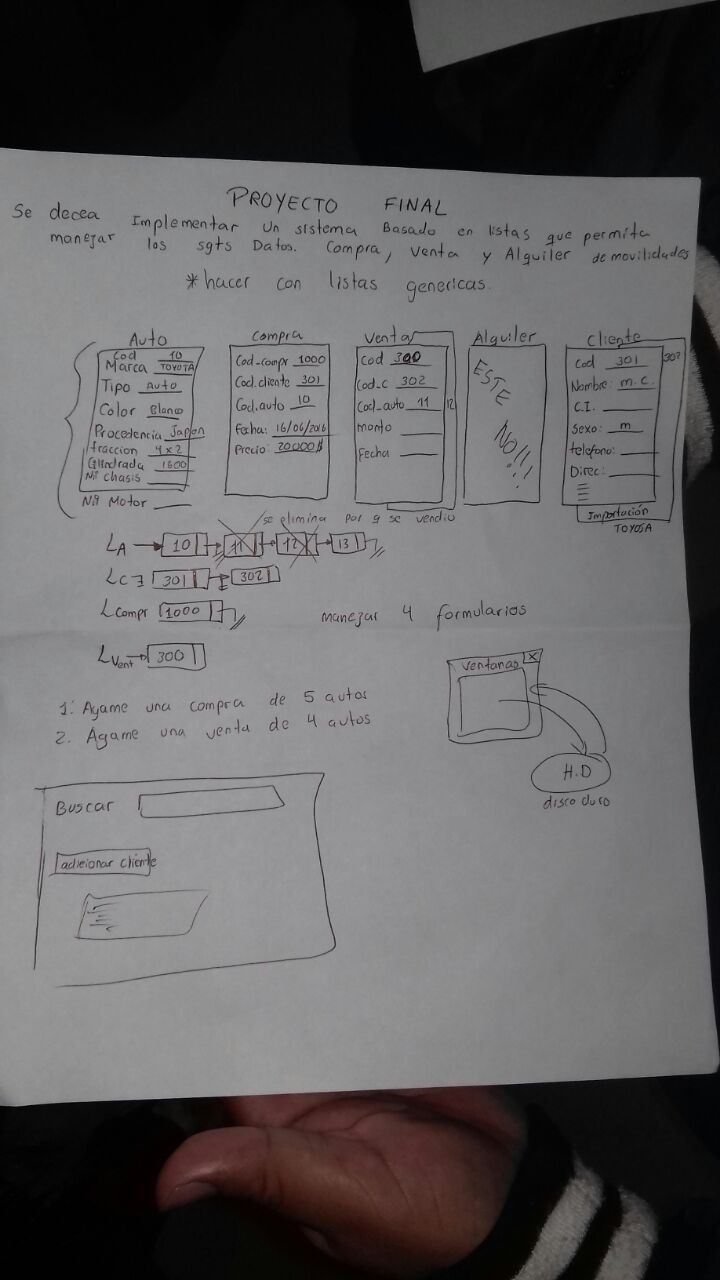 PROYECTO FINAL
Se decea Implementar un sistema Basado en listas que permita
manejar los sgts Datos. Compra, Venta y Alguiler de movilidades
*hacer con listas genericas.
Auto
Cod 10
Marca TOYOTA
Tipo Auto
Color Blanco
Procedencia Japon
traccion 4x2
Cilindrada 1600
Nº chasis
Nº Motor
Compra
Cod_compr 1000
Cod.cliente 301
Cod.auto 10
Fecha: 16/06/2016
Precio: 20000$
Venta
Cod 300
Cod_c 302
Cod_auto 11 12
monto
Fecha
Alguiler
ESTE
NO!!!
Cliente
Cod 301 302
Nombre: m.c.
C.I.
sexo: m
telefono:
Direc:
Importación
TOYOSA
se elimina por q se vendio
LA 10 11 12 13
LC 301 302
LCompr 1000
manezar 4 formularios
LVent 300
Ventanas X
H.D
disco duro
1. Agame una compra de 5 autos
2. Agame una venta de 4 autos
Buscar
adicionar cliente